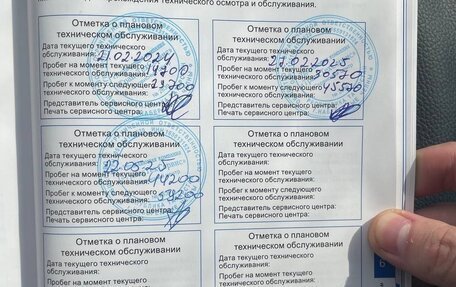 прохождения технического осмотра и обслуживания.
Отметка о плановом
техническом обслуживании
Дата текущего технического
обслуживания: 21.02.2024
Пробег на момент текущего
технического обслуживания:
Пробег к моменту следующего
технического обслуживания:
Представитель сервисного центра:
Печать сервисного центра:
Отметка о плановом
техническом обслуживании
Дата текущего технического
обслуживания: 27.02.2025
Пробег на момент текущего
технического обслуживания: 30570
Пробег к моменту следующего
технического обслуживания: 45570
Представитель сервисного центра:
Печать сервисного центра:
Отметка о плановом
техническом обслуживании
Дата текущего технического
обслуживания:
Пробег на момент текущего
технического обслуживания: 14200
Пробег к моменту следующего
технического обслуживания:
Представитель сервисного центра:
Печать сервисного центра:
Отметка о плановом
техническом обслуживании
Дата текущего технического
обслуживания:
Пробег на момент текущего
технического обслуживания:
Пробег к моменту следующего
технического обслуживания:
Представитель сервисного центра:
Печать сервисного центра:
Отметка о плановом
техническом обслуживании
Дата текущего технического
обслуживания:
Пробег на момент текущего
технического обслуживания:
Отметка о плановом
техническом обслуживании
Дата текущего технического
обслуживания:
Пробег на момент текущего
технического обслуживания: